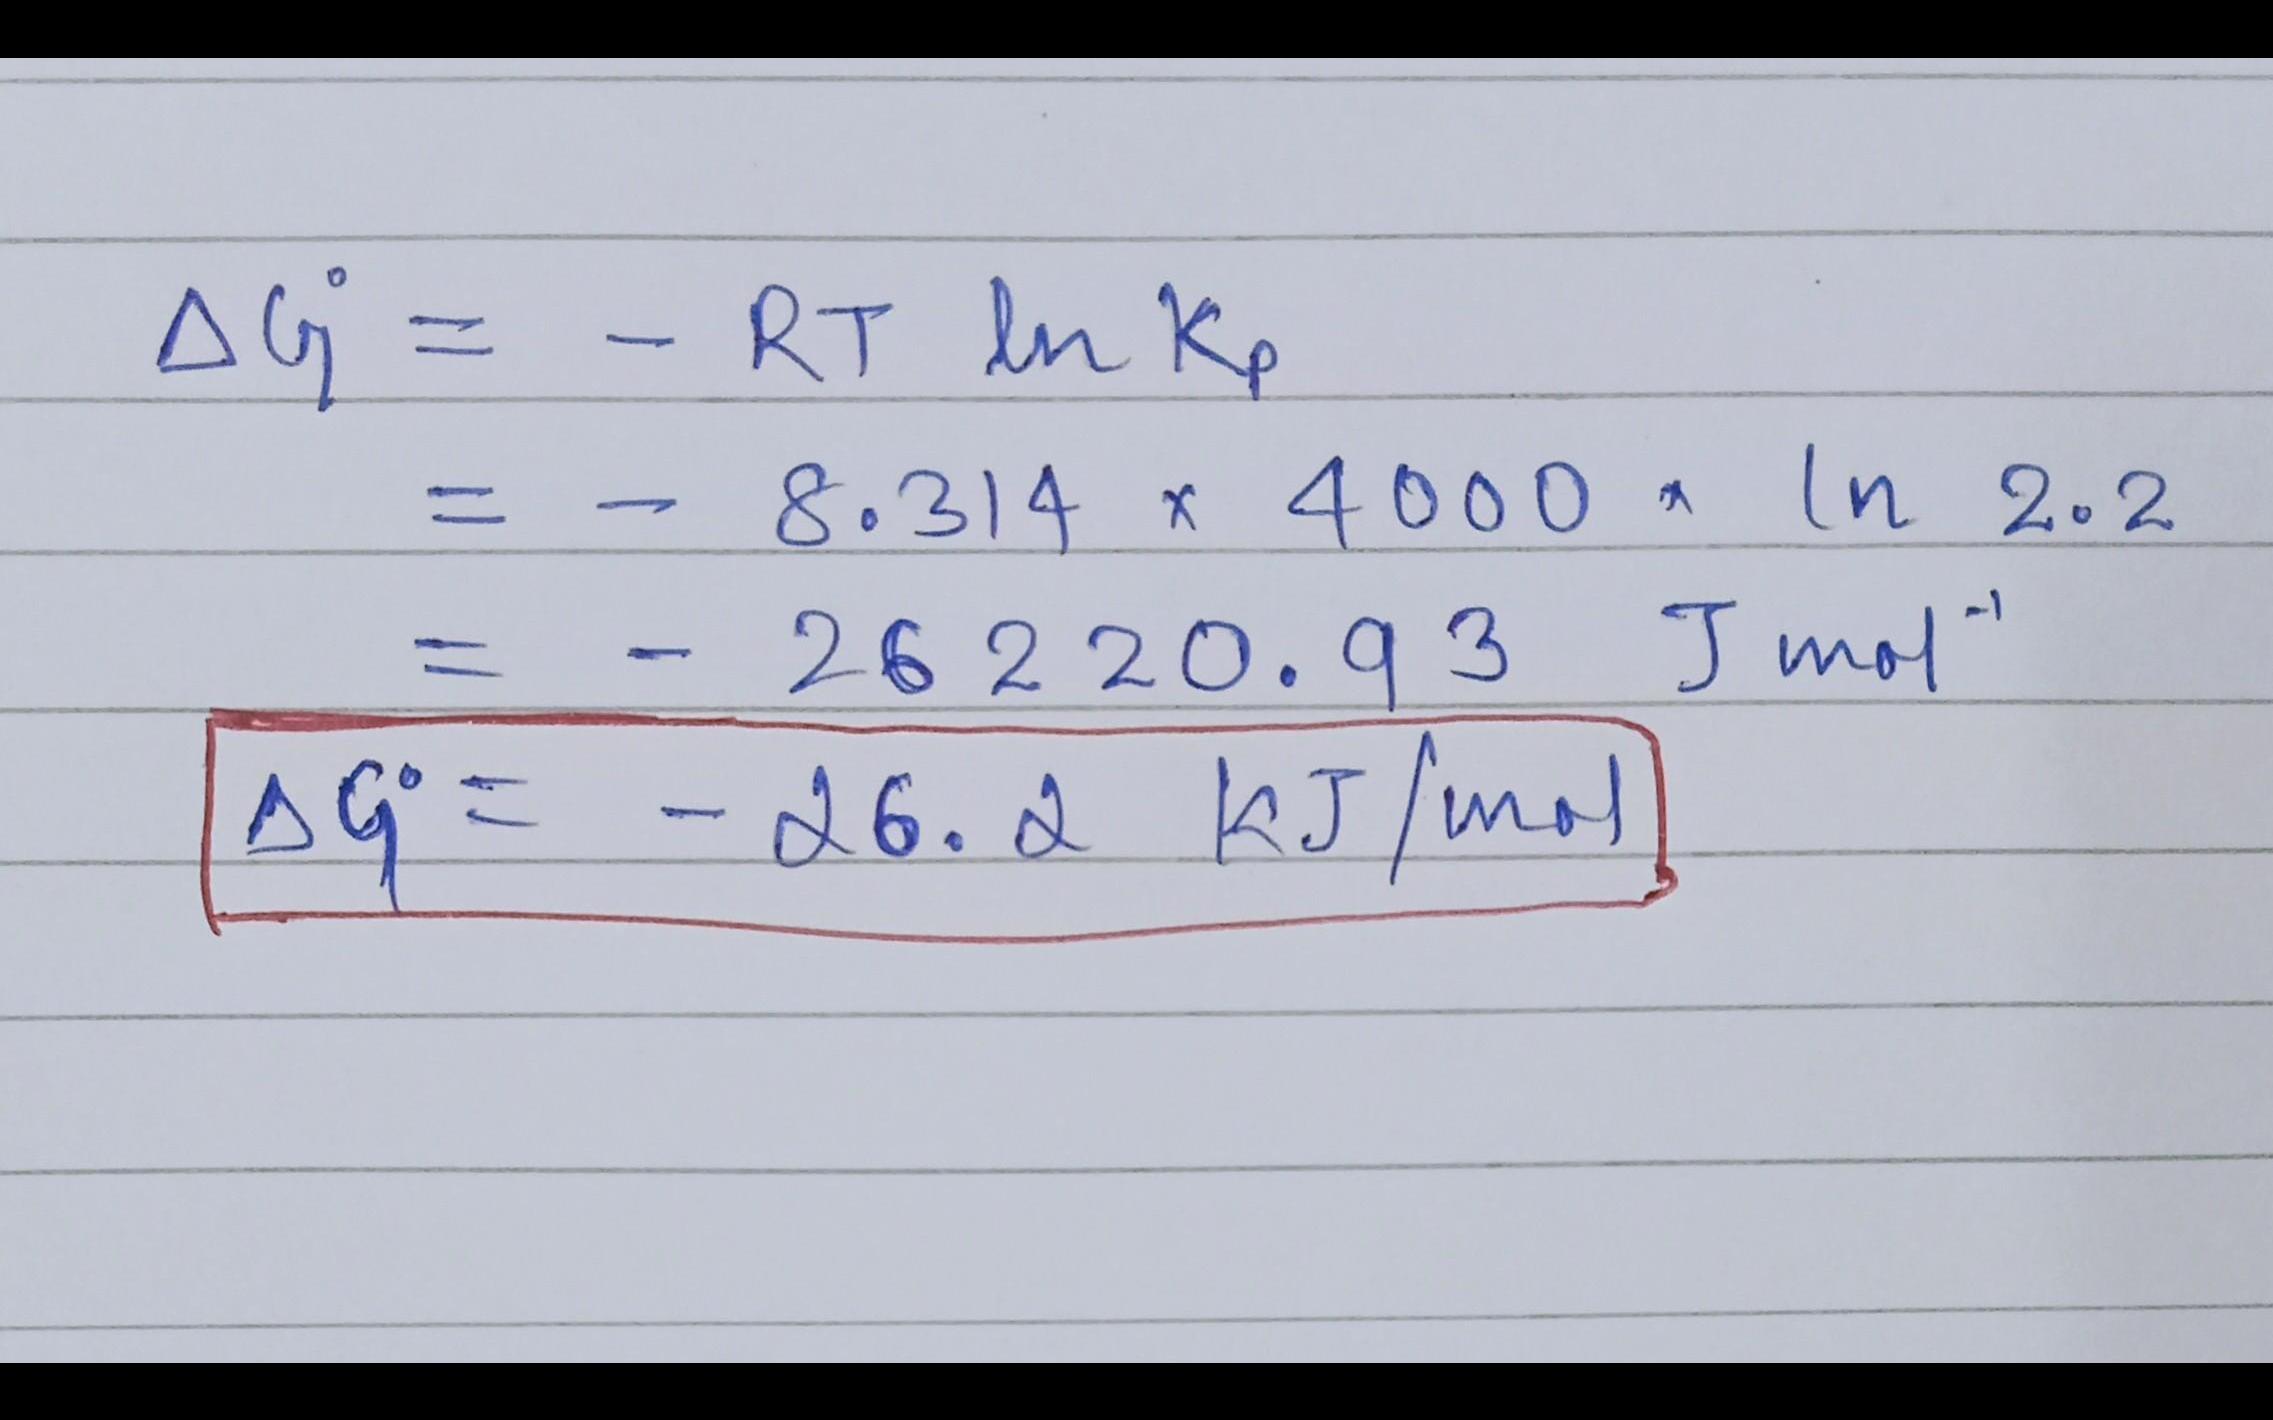 ΔG° = - RT ln Kp
= - 8.314 × 4000 × ln 2.2
= - 26220.93 J mol⁻¹
ΔG° = - 26.2 kJ/mol